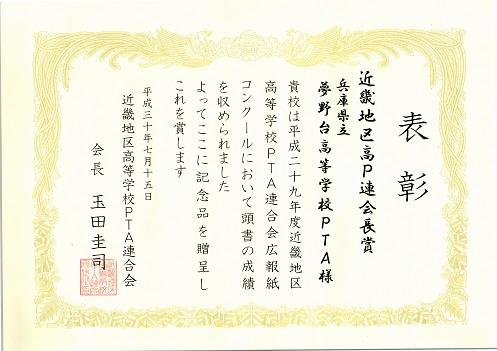 表彰
近畿地区高P連会長賞
兵庫県立
夢野台高等学校PTA様
貴校は平成二十九年度近畿地区
高等学校PTA連合会広報紙
コンクールにおいて頭書の成績
を収められました
よってここに記念品を贈呈し
これを賞します
平成三十年七月十五日
近畿地区高等学校PTA連合会
会長 玉田圭司